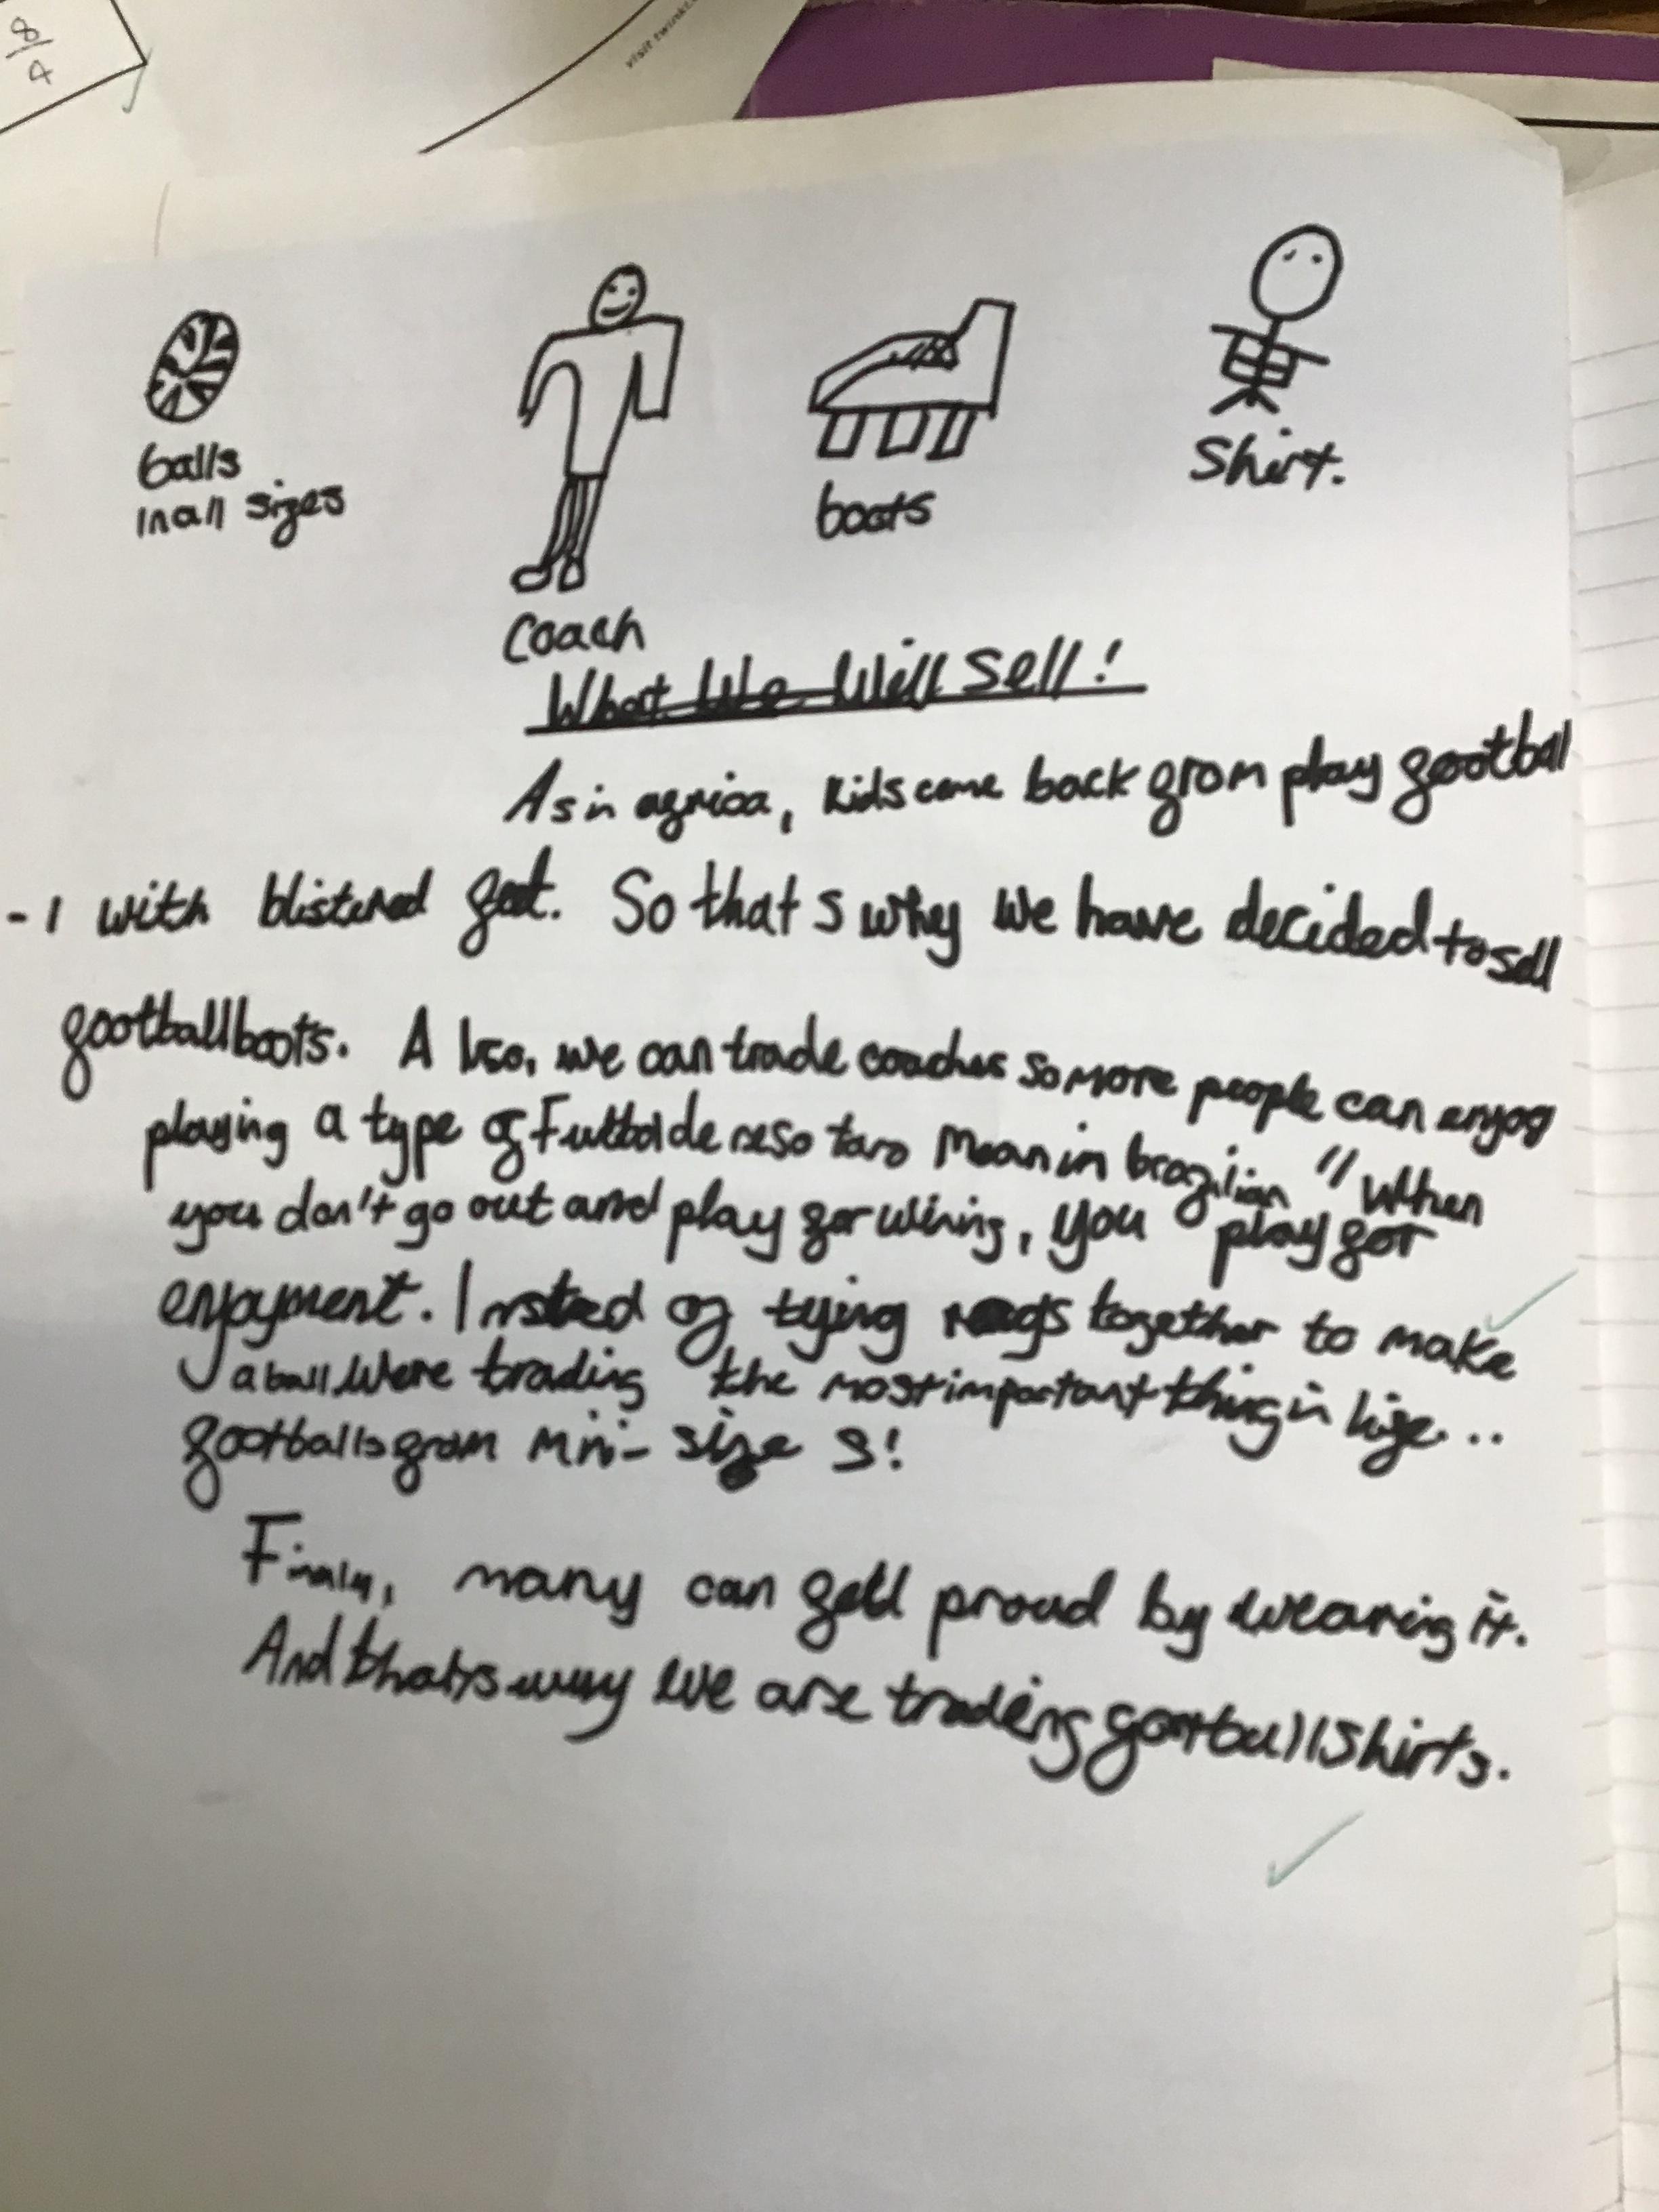 8
4
visit twinkl.
balls
in all sizes
coach
boots
Shirt.
What We Will Sell!
As in africa, kids come back from play footbal
-l with blistered feet. So that s why we have decided to sell
football boots. Also, we can trade coaches so more people can enjoy
playing a type of Futbol de meaning in brazilian "When
you don't go out and play for wining, you play for
enjoyment. Insted of tying rags together to make
a ball were trading the most important thing in life...
footballs from mini- size 5!
Finaly, many can feel proud by wearing it.
And thats why we are trading football shirts.